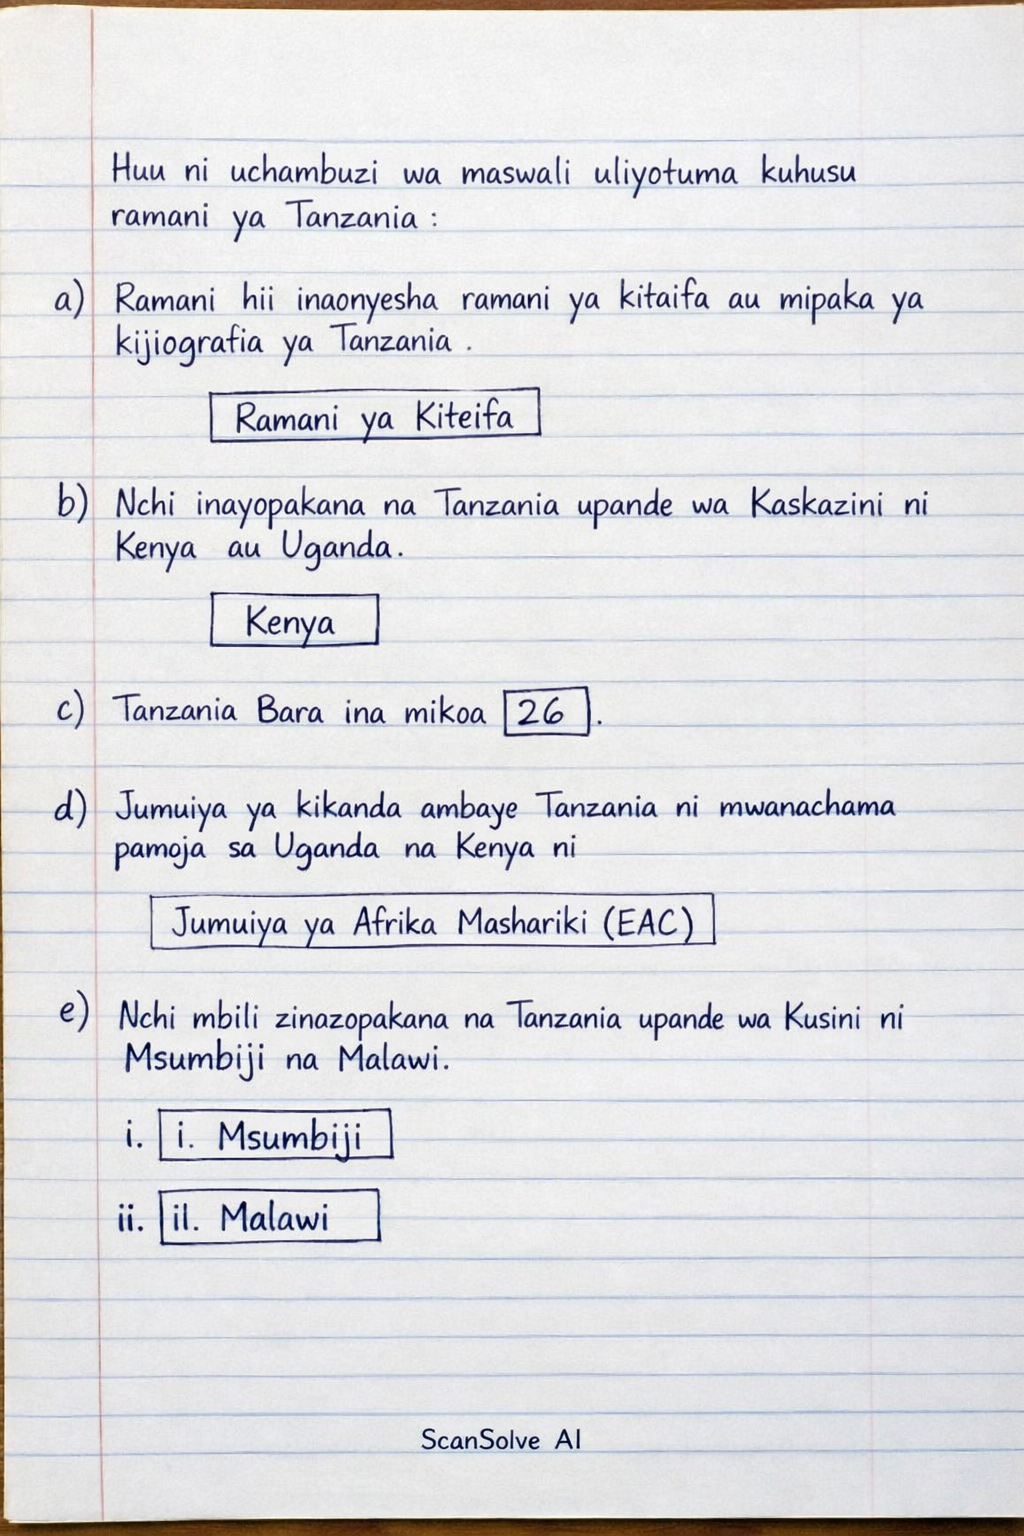 Huu ni uchambuzi wa maswali uliyotuma kuhusu
ramani ya Tanzania :
a) Ramani hii inaonyesha ramani ya kitaifa au mipaka ya
kijiografia ya Tanzania .
Ramani ya Kiteifa
b) Nchi inayopakana na Tanzania upande wa Kaskazini ni
Kenya au Uganda.
Kenya
c) Tanzania Bara ina mikoa 26 .
d) Jumuiya ya kikanda ambaye Tanzania ni mwanachama
pamoja sa Uganda na Kenya ni
Jumuiya ya Afrika Mashariki (EAC)
e) Nchi mbili zinazopakana na Tanzania upande wa Kusini ni
Msumbiji na Malawi.
i. i. Msumbiji
ii. il. Malawi
ScanSolve AI